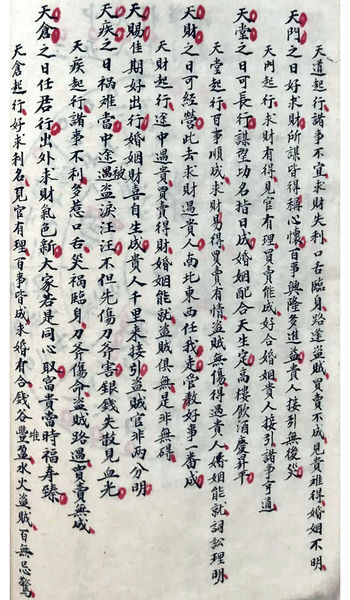 天道起行諸事不宜求財失利口舌臨身路逢盜賊買賣不成見貴难得婚姻不明
天門之日好求財所謀皆得稱心懷百事興隆多進益貴人接引無後災
天門起行求財有得見官有理買賣能成好合婚姻貴人接引諸事亨通
天堂之日可長行謀望功名指日成婚姻配合天生定高樓飲酒慶昇平
天堂起行百事順成求財易得買賣有情盜賊無傷得遇貴人婚姻能就詞訟理明
天財之日可經營此去求財遇貴人南北東西任我走管教好事一番成
天財起行途中遇貴買賣得財婚姻能就盜賊俱無是非無碍
天賜佳期好出行婚姻財喜自生成貴人千里来接引盜賊官非两分明
天疾之日祸难當中途遇盜淚汪汪不但先傷刀斧害銀錢失散見血光
天疾起行諸事不利多惹口舌災祸臨身刀斧傷命盜賊路遇買賣無成
天倉之日任君行出外求財氣色新大家若是同心取富貴當時福寿臻
天倉起行好求財名見官有理百事皆成求婚有合錢谷豐盈水火盜賊百無忌驚